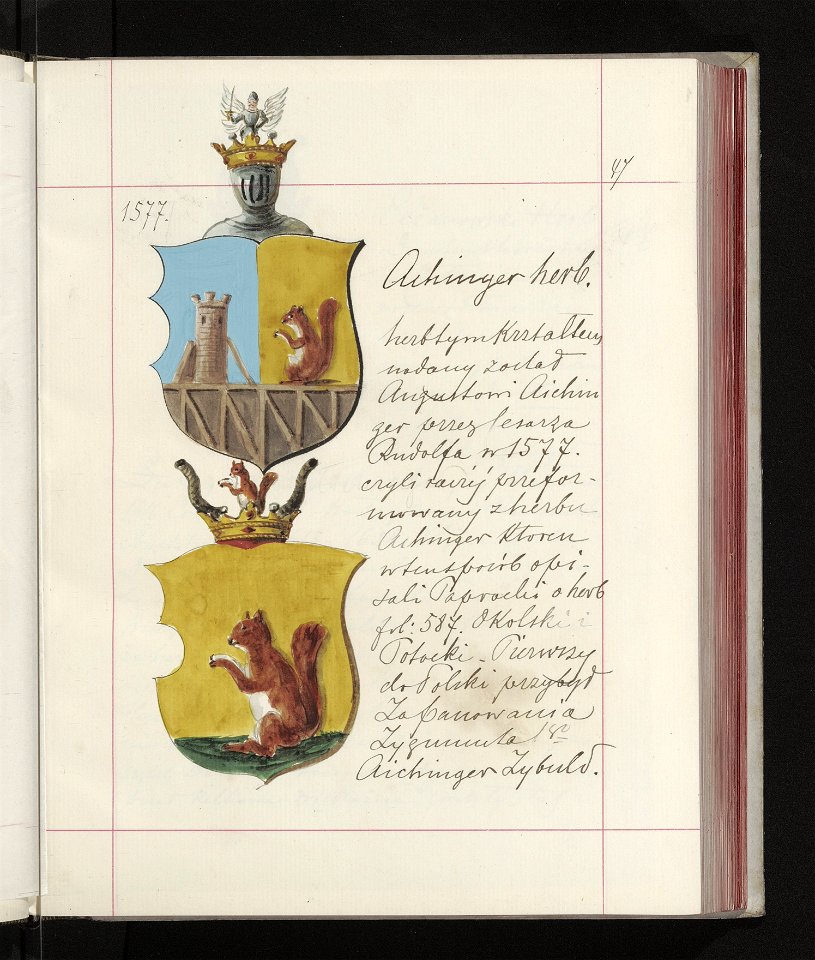 47
1577.
Aichinger herb.
herb tym Krztałtem
nadany został
Augustowi Aichin
ger przez Cesarza
Rudolfa w 1577.
czyli raczéj przefor-
mowany z herbu
Aichinger Ktoren
w ten sposób opi-
sali Paprocki o herb
fol: 587. Okolski i
Potocki - Pierwszy
do Polski przybył
Za Panowania
Zygmunta I go
Aichinger Zybuld.